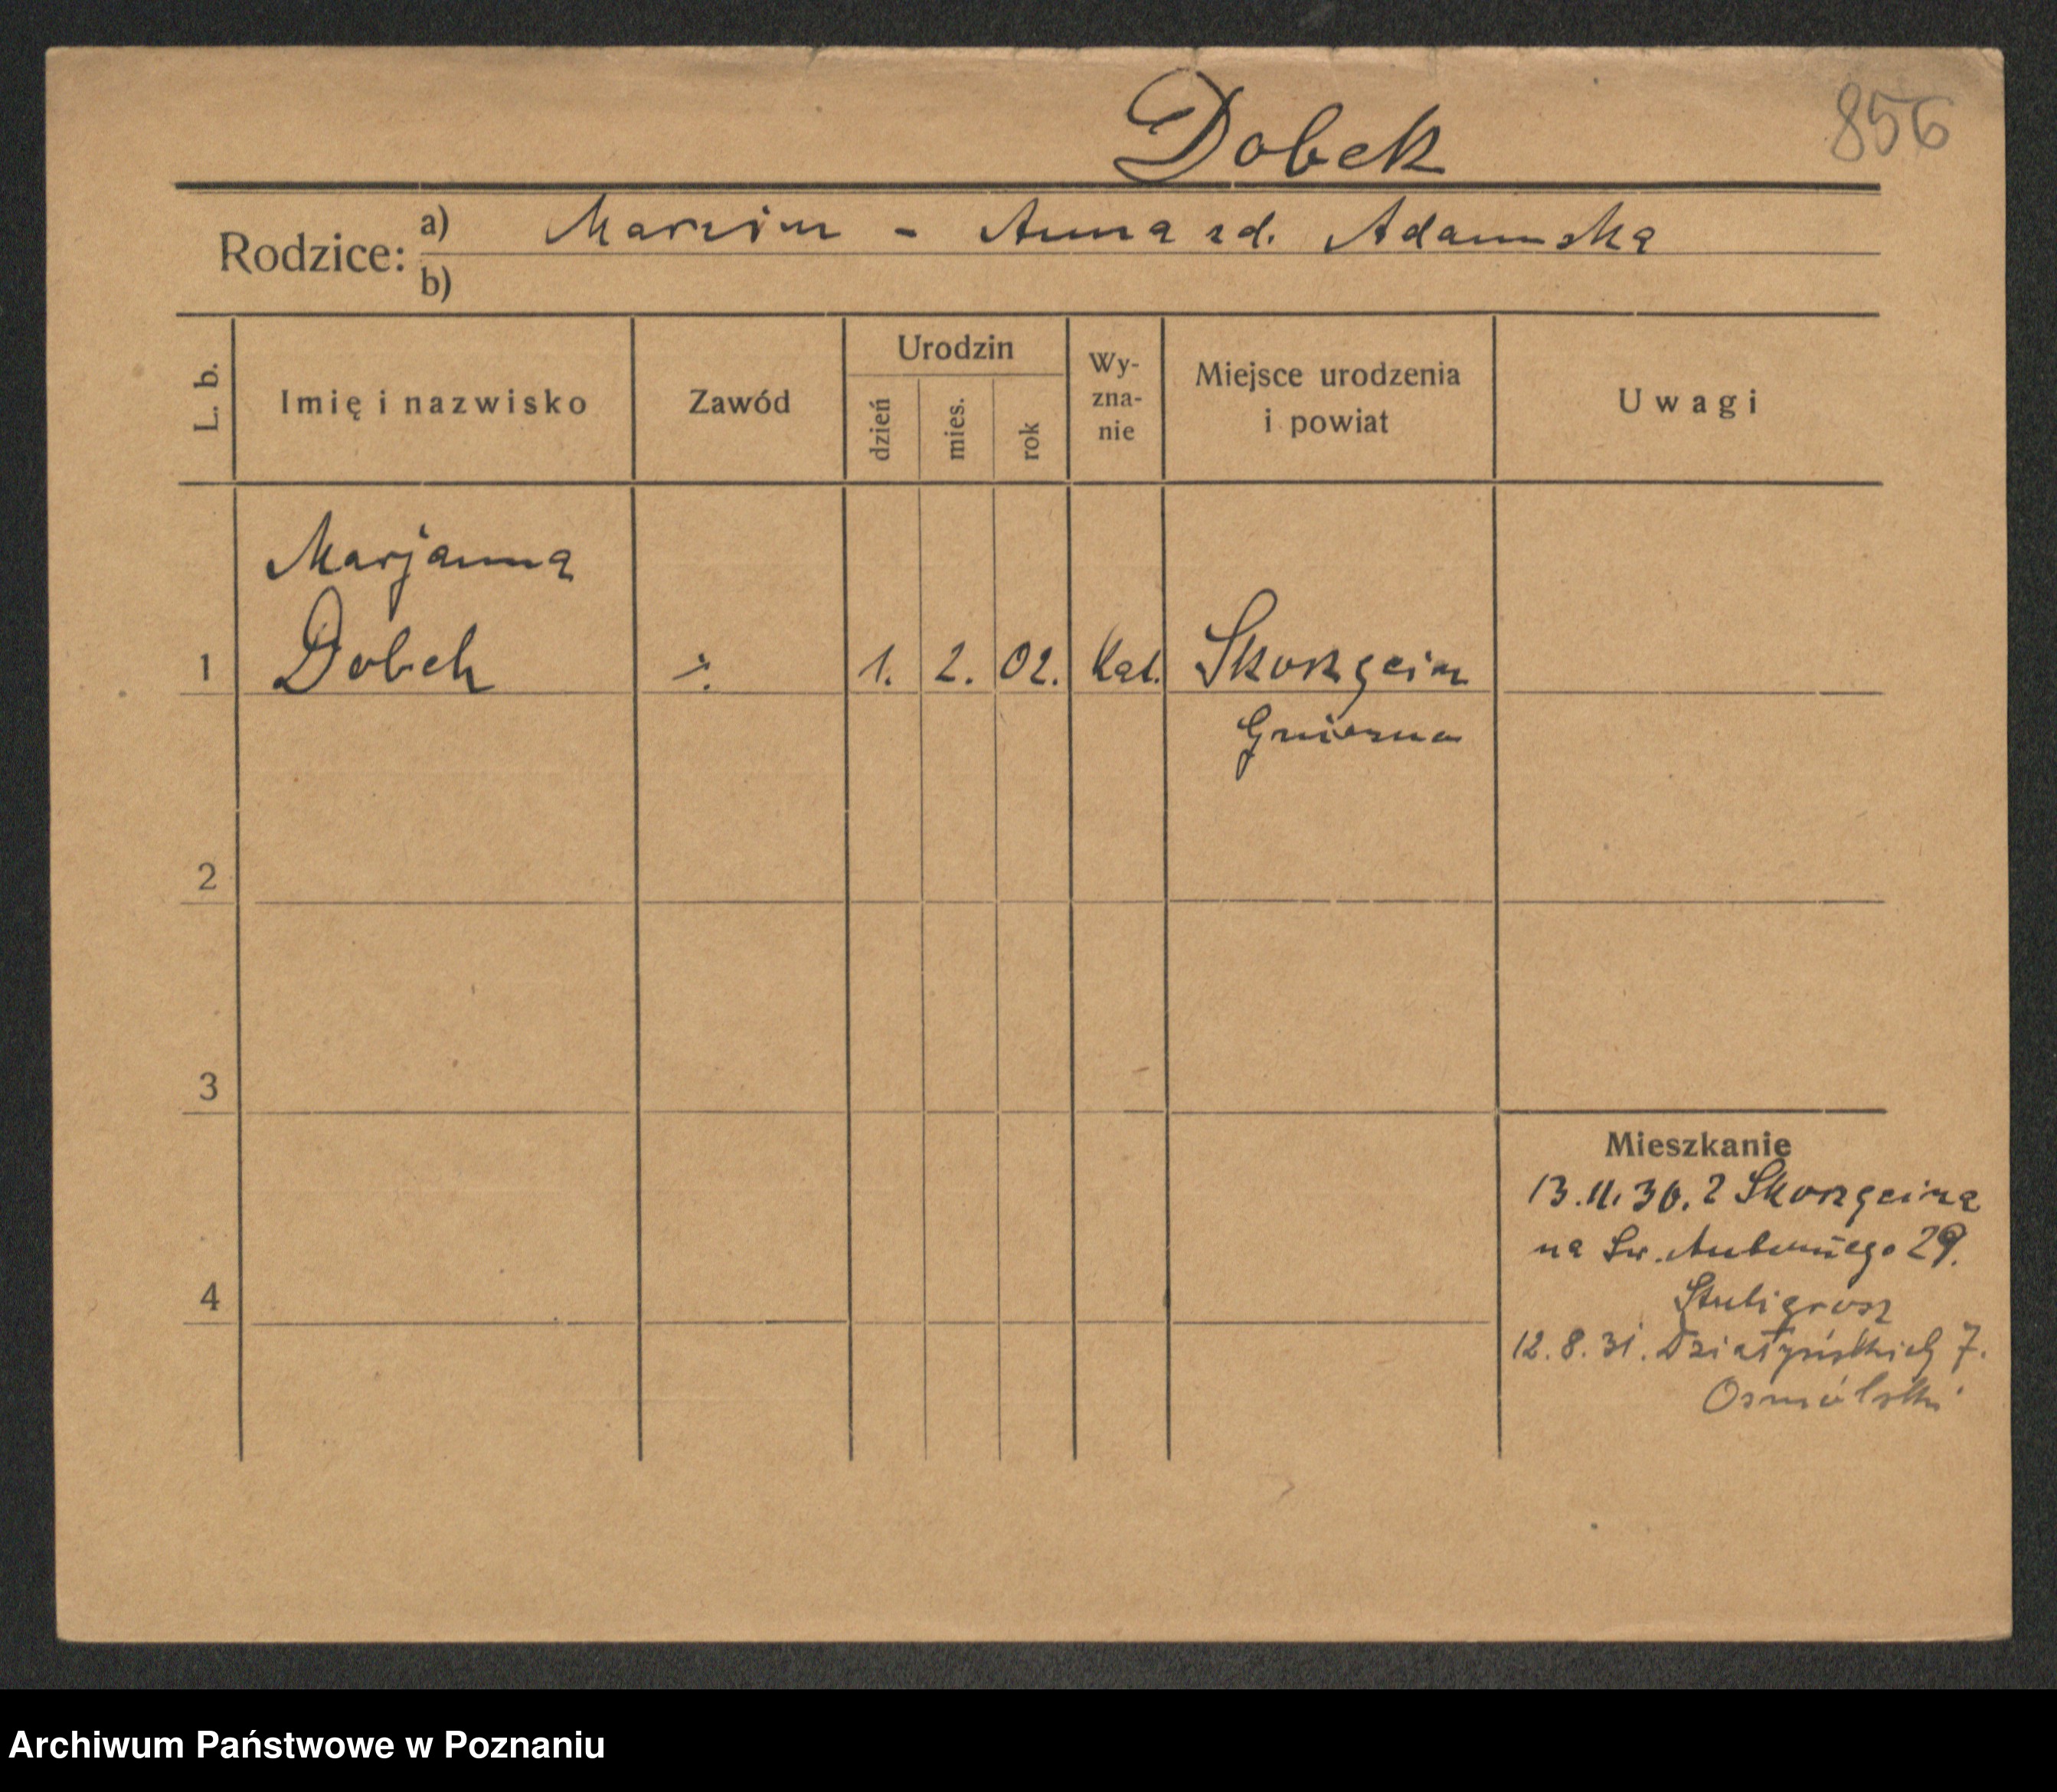 Dobek
856
Rodzice: a) Marcin - Anna zd. Adamska
b)
L. b.
Imię i nazwisko
Zawód
Urodzin
dzień
mies.
rok
Wy-
zna-
nie
Miejsce urodzenia
i powiat
Uwagi
Marjanna
1 Dobek ./. 1. 2. 02. Kat. Skorzęcin
Gniezno
2
3
Mieszkanie
13.11.30. z Skorzęcina
na Św. Antoniego 29.
4
12.8.31. Działyńskich 7.
Osmólski
Archiwum Państwowe w Poznaniu